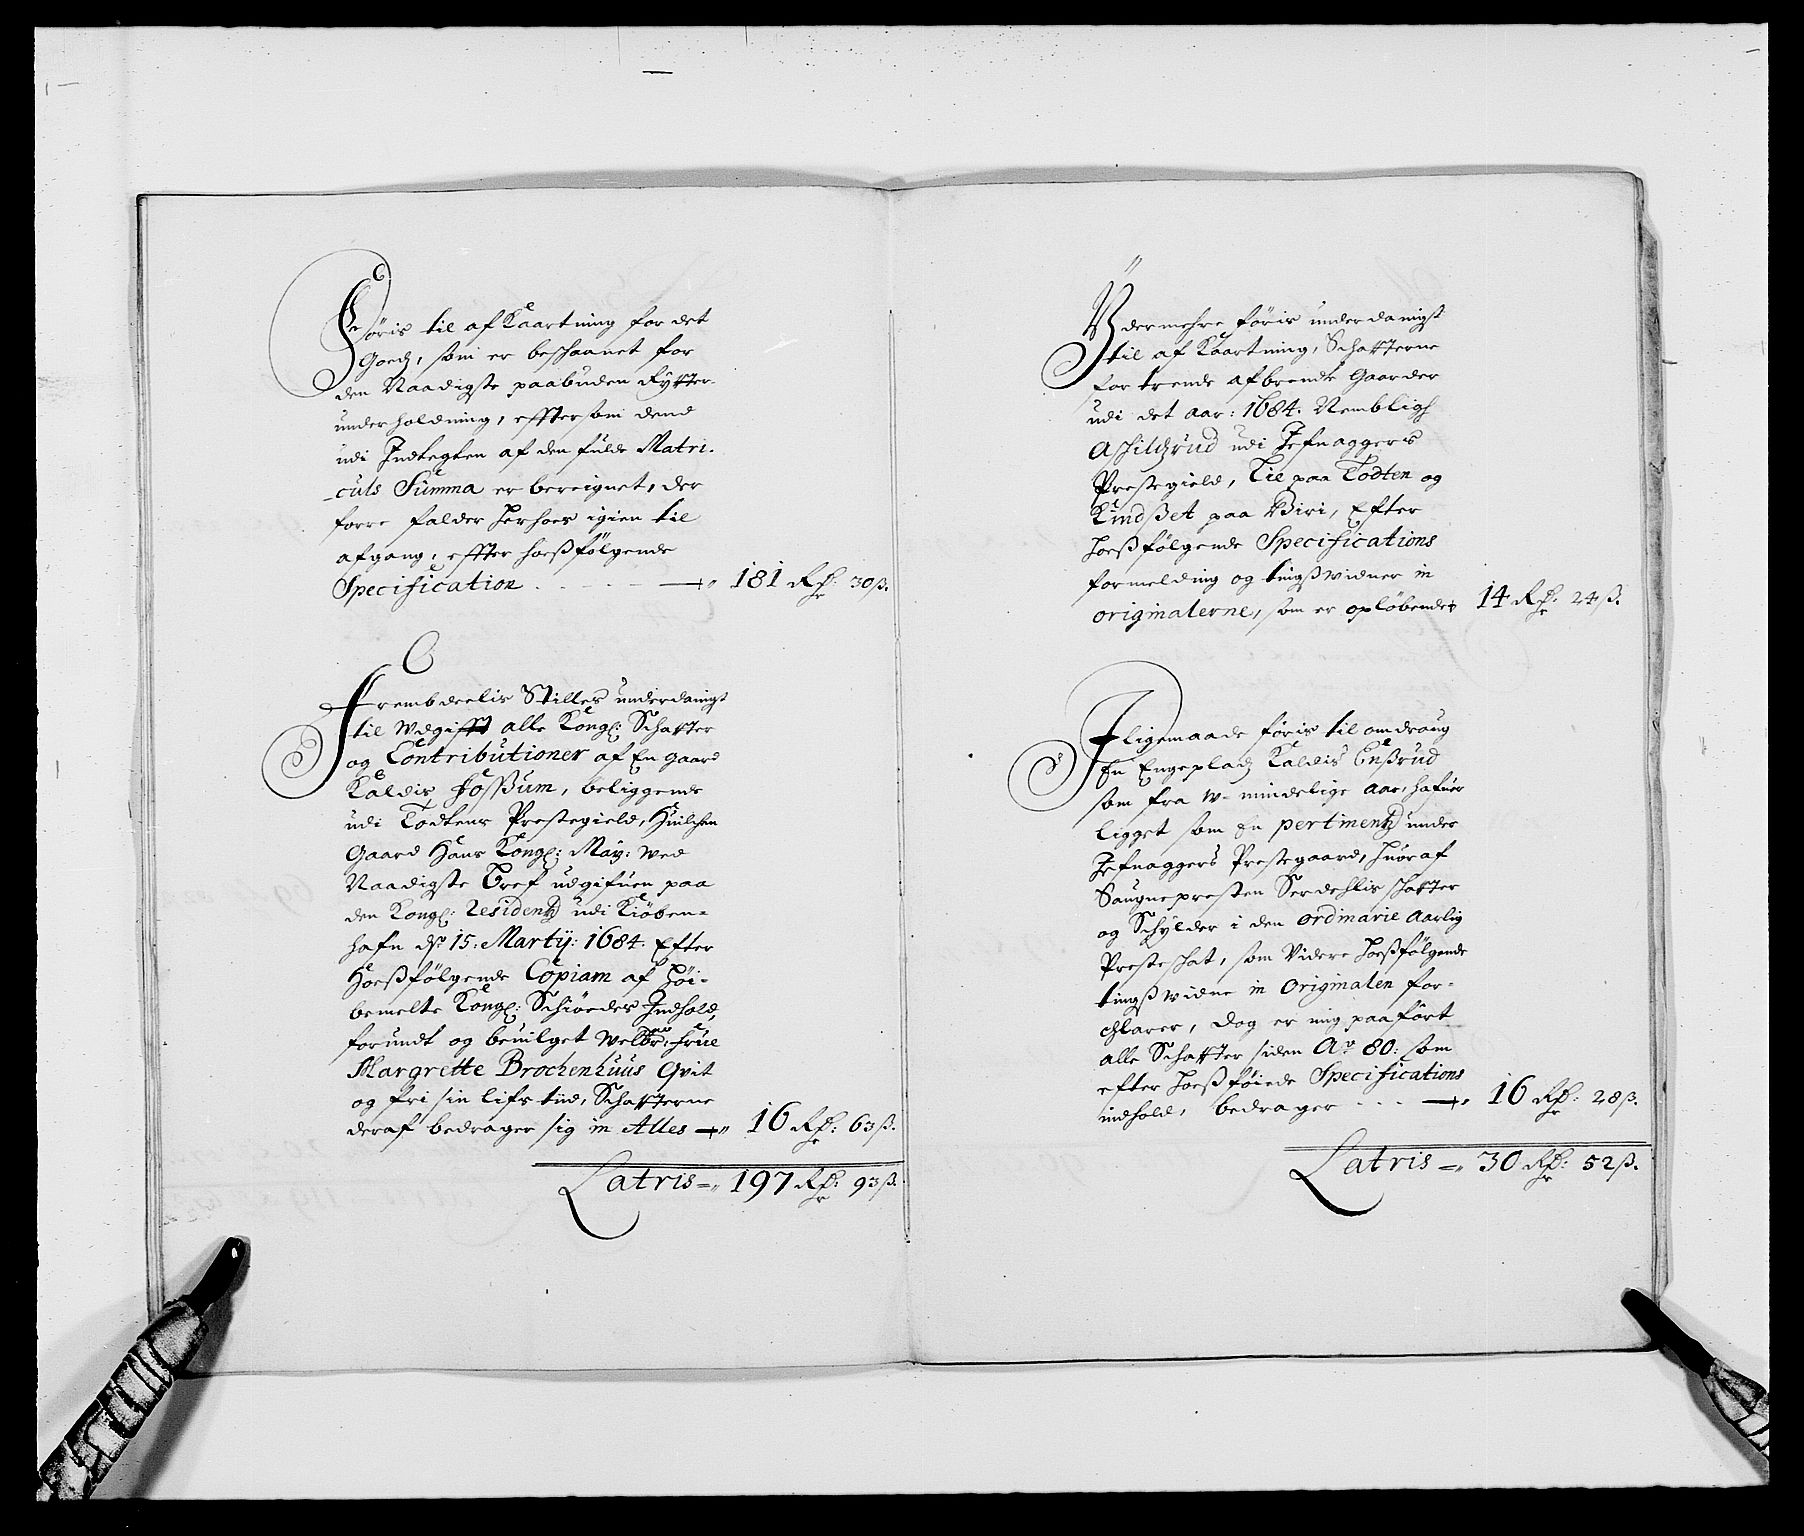 Föris til af Kaartning for det
Goedz, som er beschaanet for
den Naadigste paabuden Rytter-
underholdning, efftersom dend
udi Indtegten af den fulde Matri-
culs Summa er bereignet, der
forre falder herhoes igien til
afgang, effter hoesßfölgende
Specification 181 Rdr: 30ß.
Frembdeelis Stilles underdanigst
til Wdgifft alle Kongl: Schatter
og Contributioner af En gaard
Kaldis Fossum, beliggende
udi Todtens Prestegield, Huilchen
Gaard Hans Kongl: May: wed
Naadigste Bref udgifuen paa
den Kongl: Residentz udi Kiöben-
hafn ds: 15. Martij: 1684. Efter
Hoesßfölgende Copiam af höi-
bemelte Kongl: Schiöedes Indhold,
forundt og beuilget Welbr: Frue
Margrette Brochenhuus Qvit
og fri sin lifs tiid, Schatterne
deraf bedrager sig in Alles 16 Rdr: 63ß.
Latris = 197 Rdr: 93ß.
Ydermehre föris underdanigst
til af Kaartning, Schatterne
for trende afbrendte Gaarder
udi det aar: 1684. Nembligh
Aschildzrud udi Jefnaggers
Prestegield, Lie paa Todten og
Kindset paa Biri, Efter
hoesßfölgende Specifications
formelding og tingswidner in
originalerne, som er opløbende 14 Rdr: 24ß.
Iligemaade föris til omdraug
En Engeplads Kaldis Enßrud
som fra W-mindelige Aar, hafuer
ligget som En pertinentz under
Jefnaggers Prestegaard, huoraf
Saugnepresten Serdehlis schatter
og Schylder i den ordinarie Aarlig
Presteschat, som Videre hoesßfölgende
tingswidne in Originalen for-
chlarer, dog er mig paafört
alle Schatter siden Ao 80: som
efter hoesßföiede Specifications
indhold, bedrager 16 Rdr: 28ß.
Latris = 30 Rdr: 52ß.